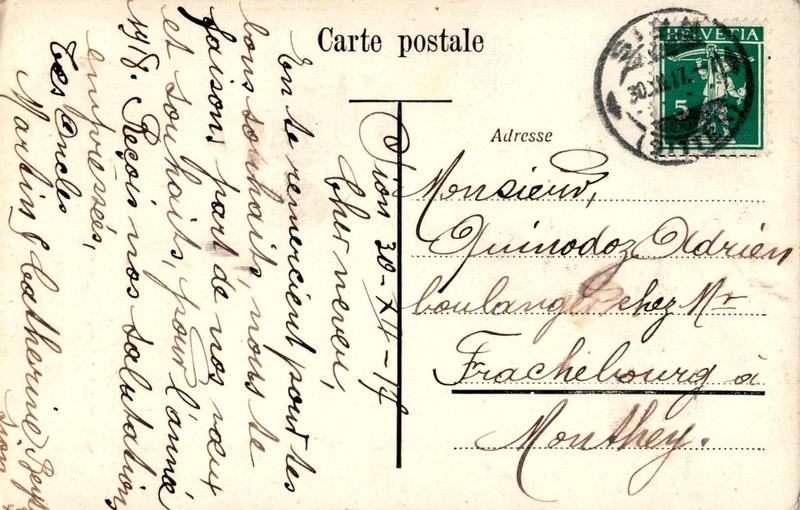 Carte postale
HELVETIA
5
30.XII.17.
SION
(SITTEN)
Adresse
Monsieur,
Quinodoz Adrien
boulanger chez Mr
Frachebourg à
Monthey.
Sion 30-XII-17
Cher neveu,
En te remerciant pour tes
bons souhaits, nous te
faisons part de nos vœux
et souhaits, pour l'année
1918. Reçois nos salutations
empressées,
Tes oncles
Martin & Catherine
Sion